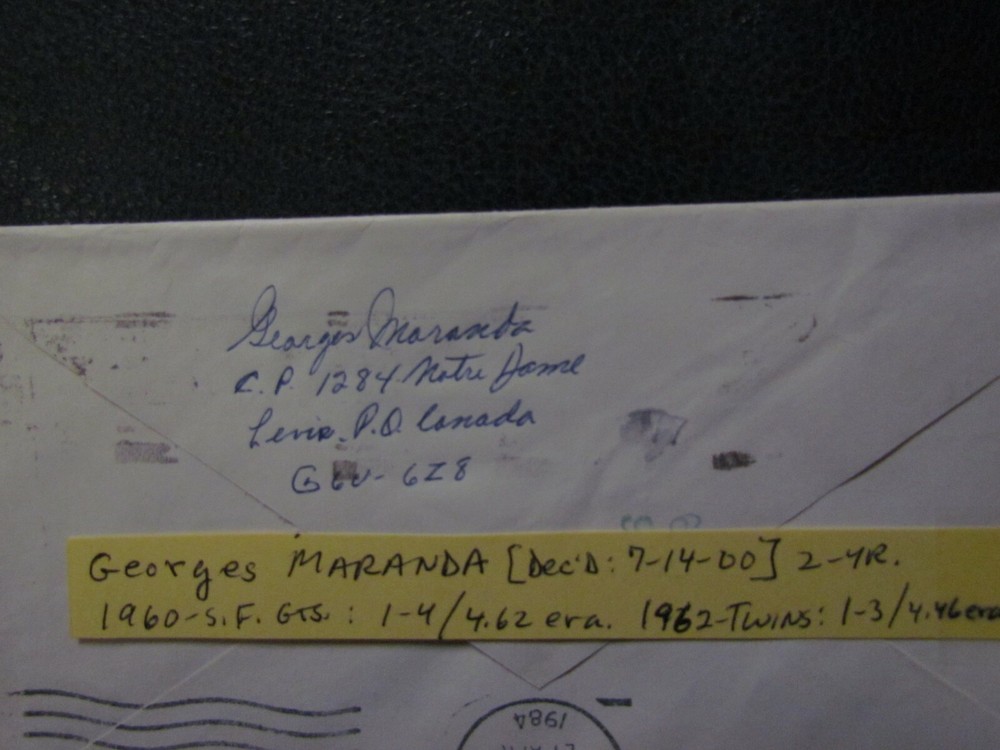 Georges Maranda
C.P. 1284 Notre Dame
Levis. P.Q. Canada
G6V-6Z8
Georges MARANDA [Dec'D: 7-14-00] 2-YR.
1960-S.F. GTS.: 1-4/4.62 era. 1962-TWINS: 1-3/4.46 era
1984